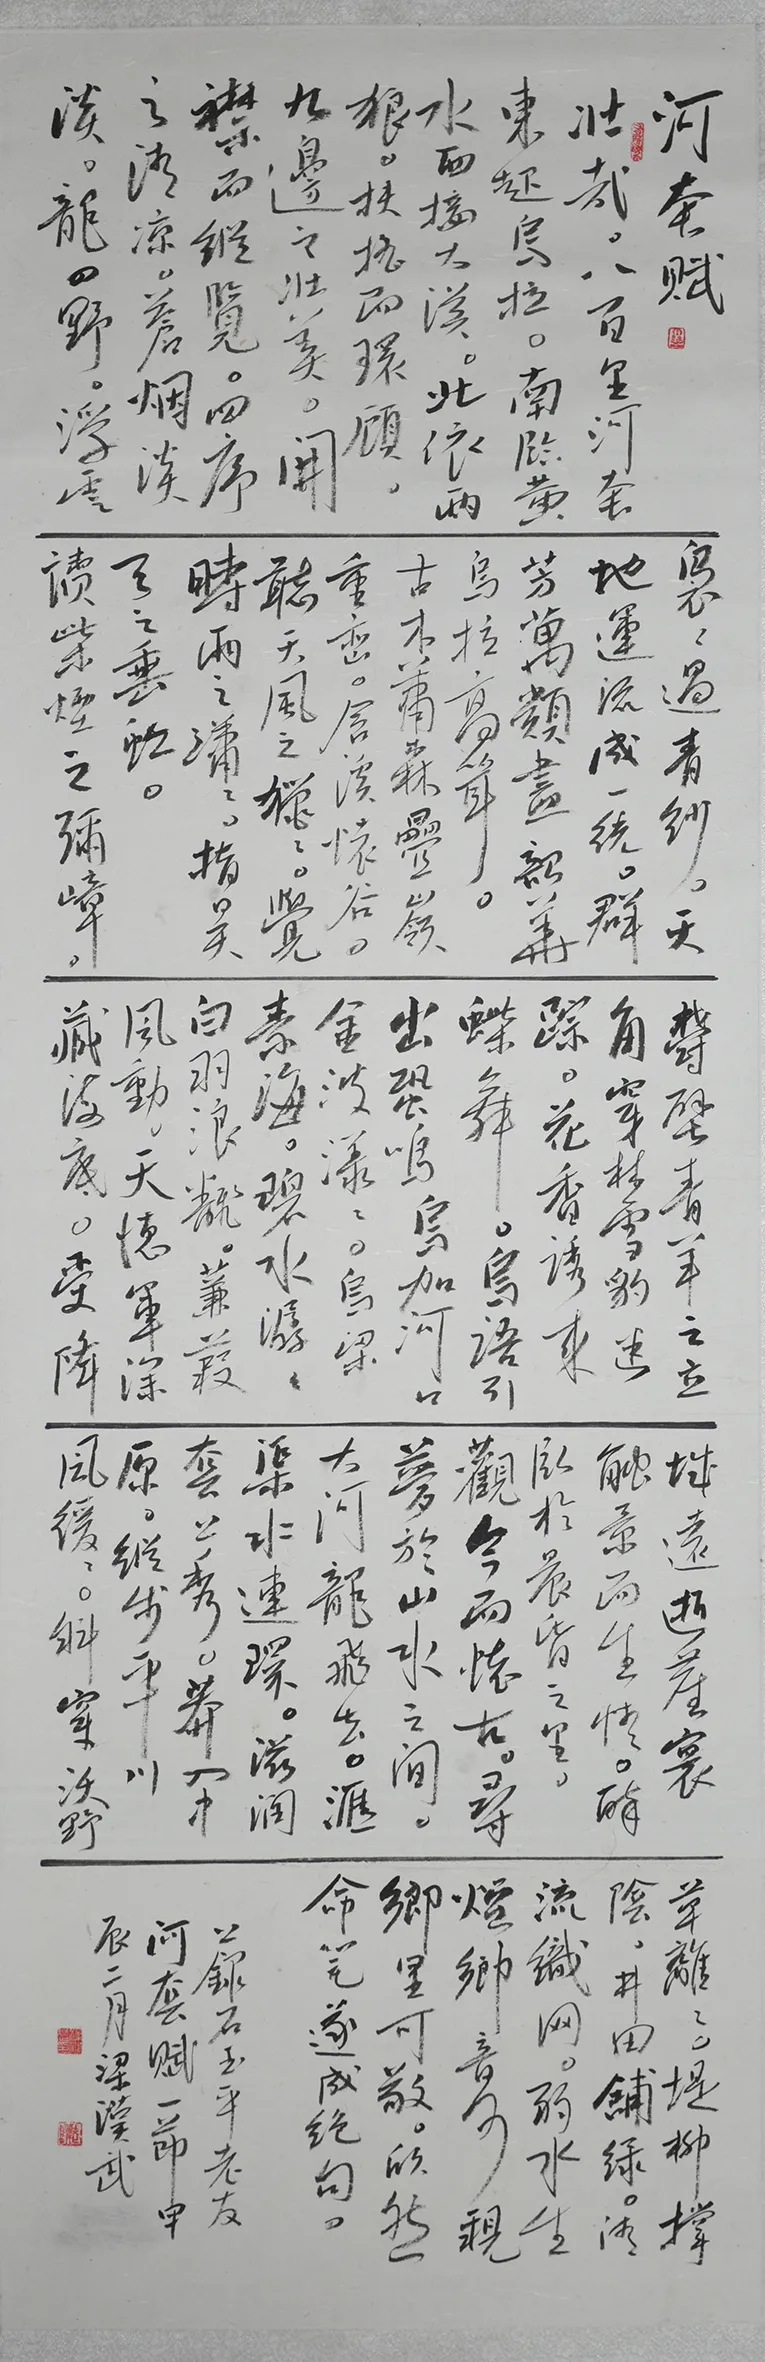 河套賦
壯哉。八百里河套
東起烏拉。南臨黃
水西接大漠。北依兩
狼。扶搖而環顧。
九邊之壯美。開
襟而縱覽。四序
之清涼。蒼烟淡
淡。龍口野。浮雲
裊裊過青紗。天
地運流成一統。群
芳萬類盡韶華
烏拉高聳。
古木蕭森疊嶺
重巒。含溪懷谷。
聽天風之獵獵。覺
時雨之瀟瀟。指昊
天之垂虹。
讀紫煙之彌嶂。
攀壁青羊之立
角穿林雪豹迷
踪。花香誘來
蝶舞。鳥語引
出蛩鳴烏加河口
金波漾漾。烏梁
素海。碧水潺潺
白羽浪翻。蒹葭
風動。天德軍深
藏海底。受降
城遠逝崖裏
觸景而生情。醉
臥於晨昏之里。
觀今而懷古。尋
夢於山水之間。
大河龍飛去。滙
渠水連環。滋潤
套上秀。莽中
原。縱步平川
風緩緩。斜穿沃野
草離離。堤柳撐
陰。井田鋪綠。清
流織网。弱水生
煙鄉音可親
鄉里可敬。欣然
命筆遂成絕句。
上錄石玉平老友
河套賦一節甲
辰二月梁漢武